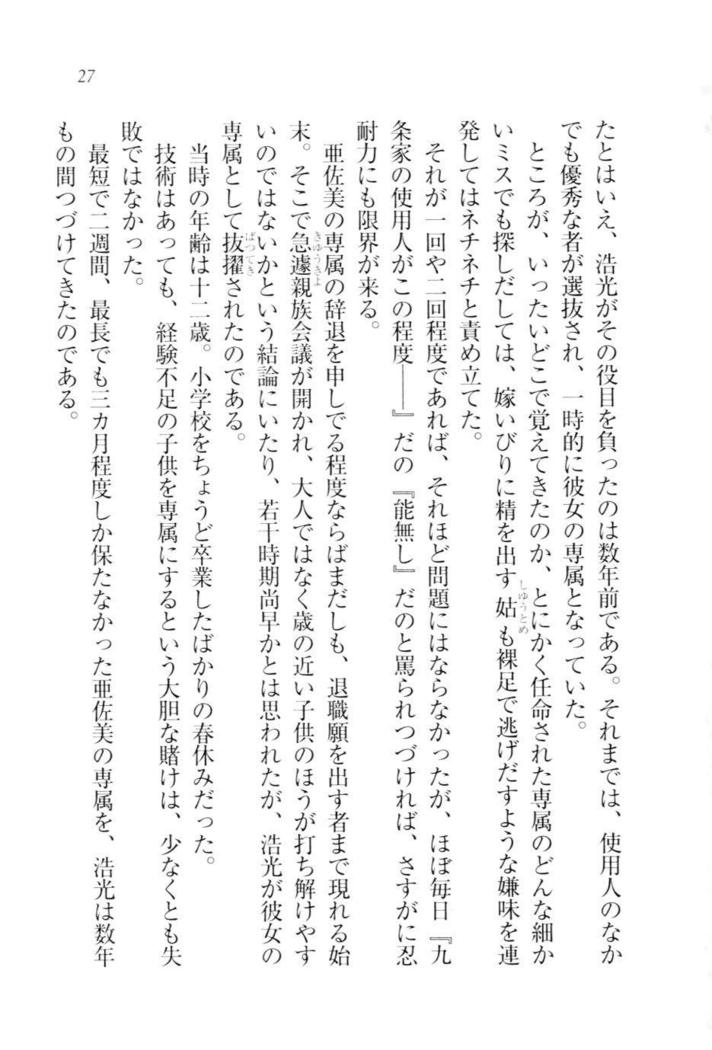 27
たとはいえ、浩光がその役目を負ったのは数年前である。それまでは、使用人のなか
でも優秀な者が選抜され、一時的に彼女の専属となっていた。
ところが、いったいどこで覚えてきたのか、とにかく任命された専属のどんな細か
いミスでも探しだしては、嫁いびりに精を出す姑も裸足で逃げだすような嫌味を連
しゆうとめ
発してはネチネチと責め立てた。
それが一回や二回程度であれば、それほど問題にはならなかったが、ほぼ毎日『九
条家の使用人がこの程度――』だの『能無し』だのと罵られつづければ、さすがに忍
耐力にも限界が来る。
亜佐美の専属の辞退を申しでる程度ならばまだしも、退職願を出す者まで現れる始
末。そこで急遽親族会議が開かれ、大人ではなく歳の近い子供のほうが打ち解けやす
きゆうきよ
いのではないかという結論にいたり、若干時期尚早かとは思われたが、浩光が彼女の
専属として抜擢されたのである。
ばつてき
当時の年齢は十二歳。小学校をちょうど卒業したばかりの春休みだった。
技術はあっても、経験不足の子供を専属にするという大胆な賭けは、少なくとも失
敗ではなかった。
最短で二週間、最長でも三カ月程度しか保たなかった亜佐美の専属を、浩光は数年
もの間つづけてきたのである。